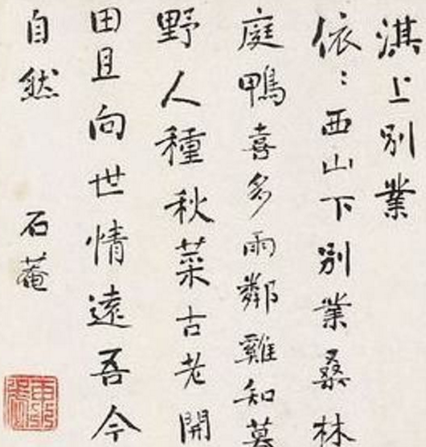 淇上別業
依〻西山下別業桑林
庭鴨喜多雨鄰雞知暮
野人種秋菜古老開
田且向世情遠吾今
自然
石菴